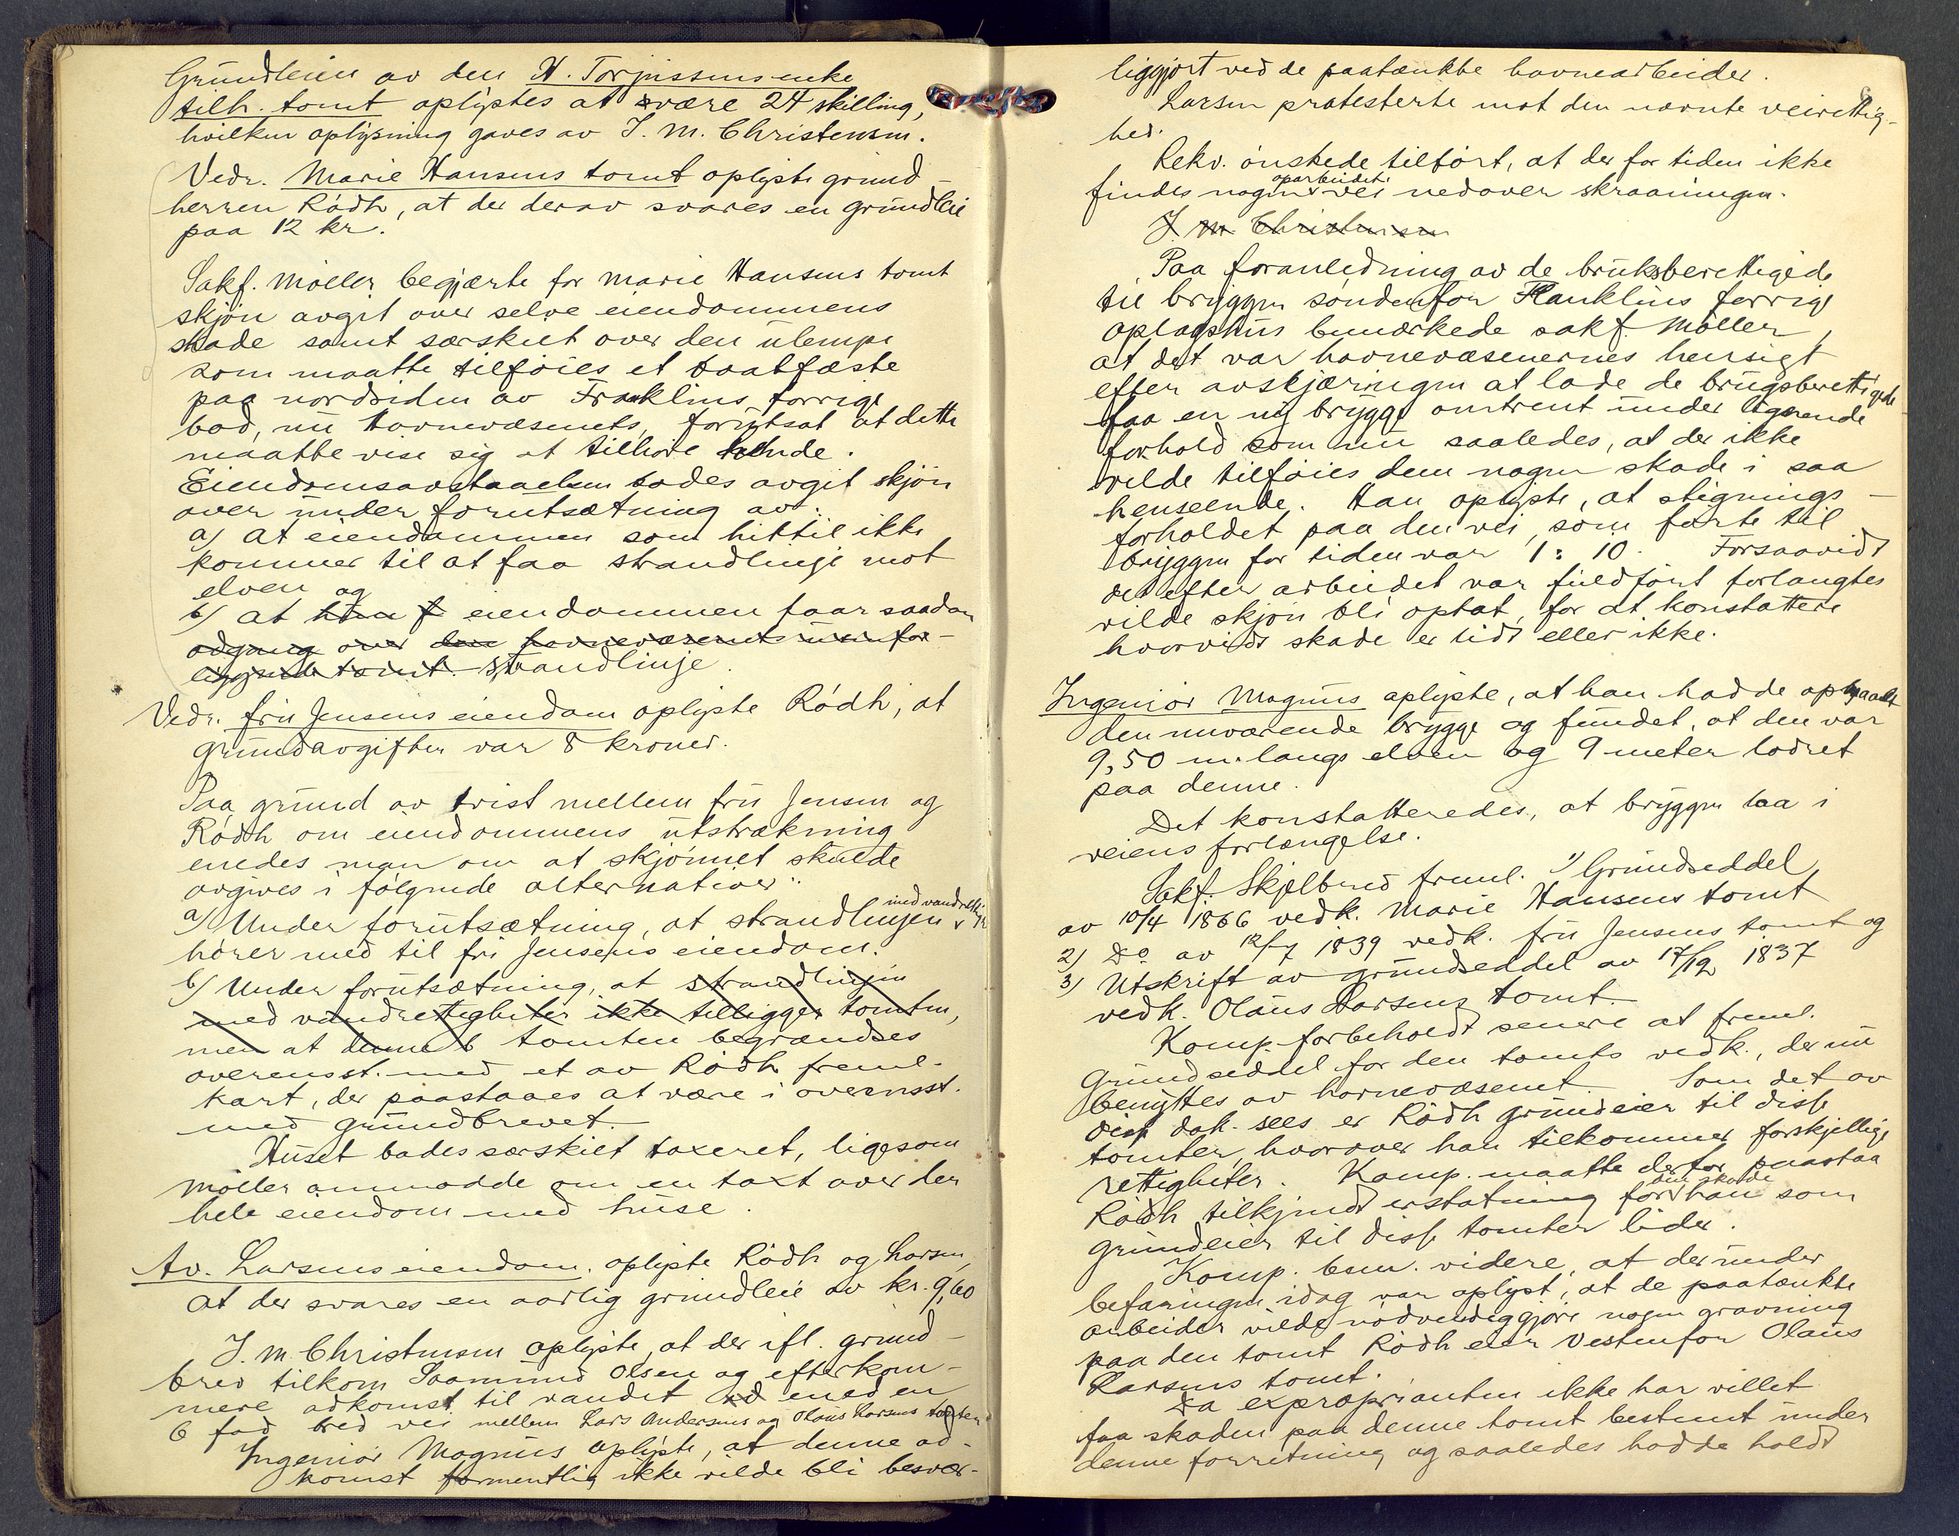 Grundleien av den H. Torjussens enke
tilh. tomt oplystes at være 24 skilling,
hvilken oplysning gaves av J. M. Christensen.
Vedr. Marie Hansens tomt oplyste grund-
herren Rödh, at der derav svares en grundleie
paa 12 kr.
Sakf. Møller begjærte for Marie Hansens tomt
skjøn avgit over selve eiendommens
skade samt særskilt over den ulempe
som maatte tilføies et baatfæste
paa nordsiden av Franklins forrige
bod, nu Havnevæsenets, forutsat at dette
maatte vise sig at tilhøre hende.
Eiendomsavstaaelsen bades avgit skjøn
over under forutsætning av:
a) At eiendommen som hittil ikke
kommer til at faa strandlinje mot
elven og
b) at eiendommen faar saadan
adgang over den havnevæsenets uten for-
liggende tomt. strandlinje.
Vedr. fru Jensens eiendom oplyste Rödh, at
grundavgiften var 8 kroner.
Paa grund av tvist mellem fru Jensen og
Rödh om eiendommens utstrækning
enedes man om at skjønnet skulde
avgives i følgende alternativer:
a) Under forutsætning, at strandlinjen med vandrettigh.
hører med til fru Jensens eiendom.
b) Under forutsætning, at strandlinjen
med vandrettigheter ikke tilligger tomten,
men at denne tomten begrændses
overensst. med et av Rödh freml.
kart, der paastaaes at være i overensst.
med grundbrevet.
Huset bades særskilt taxeret, ligesom
Møller anmodde om en taxt over den
hele eiendom med huse.
Av. Larsens eiendom, oplyste Rödh og Larsen,
at der svares en aarlig grundleie av kr. 9,60
J. M. Christensen oplyste, at der ifl. grund-
brev tilkom Saamund Olsen og efterkom-
mere adkomst til vandet med en
6 fod bred vei mellem Lars Andersens og Olaus Larsens tomter
Ingeniør Magnus oplyste, at denne ad-
komst formentlig ikke vilde bli besvær-
liggjort ved de paatænkte havnearbeider.
Larsen protesterte mot den nævnte veirettig-
het.
Rekv. ønskede tilført, at der for tiden ikke
findes nogen oparbeidet vei nedover skraaningen.
J. M. Christensen
Paa foranledning av de bruksberettigede
til bryggen søndenfor Franklins forrige
oplagshus bemærkede sakf. Møller,
at det var havnevæsenernes hensigt
efter avskjæringen at lade de brugsberettigede
faa en ny brygge omtrent under lignende
forhold som nu saaledes, at der ikke
vilde tilføies dem nogen skade i saa
henseende. Han oplyste, at stignings-
forholdet paa den vei, som førte til
bryggen for tiden var 1:10. Forsaavidt
det efter arbeidet var fuldført forlangtes
vilde skjøn bli optat, for at konstattere
hvorvidt skade er lidt eller ikke.
Ingeniør Magnus oplyste, at han hadde opmaalt
den nuværende brygge og fundet, at den var
9,50 m. langs elven og 9 meter lodret
paa denne.
Det konstatteredes, at bryggen laa i
veiens forlængelse.
Sakf. Skjelbred freml. 1) Grundseddel
av 10/4 1866 vedk. Marie Hansens tomt
2) Do av 12/7 1839 vedk. fru Jensens tomt og
3) Utskrift av grundseddel av 17/12 1837
vedk. Olaus Larsens tomt.
Komp. forbeholdt senere at freml.
Grundseddel for den tomts vedk., der nu
benyttes av havnevæsenet. Som det av
disse dok. sees er Rödh grundeier til disse
tomter, hvorover han tilkommer forskjellige
rettigheter. Komp. maatte derfor paastaa
Rödh tilkjendt erstatning for den skade han som
grundeier til disse tomter lider.
Komp. bem. videre, at der under
befaringen idag var oplyst, at de paatænkte
arbeider vilde nødvendiggjøre nogen gravning
paa den tomt Rödh eier vestenfor Olaus
Larsens tomt.
Da exproprianten ikke har villet
faa skaden paa denne tomt bestemt under
denne forretning og saaledes hadde holdt